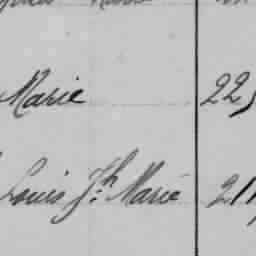 Marie 22
Louis Jh. Marie 21